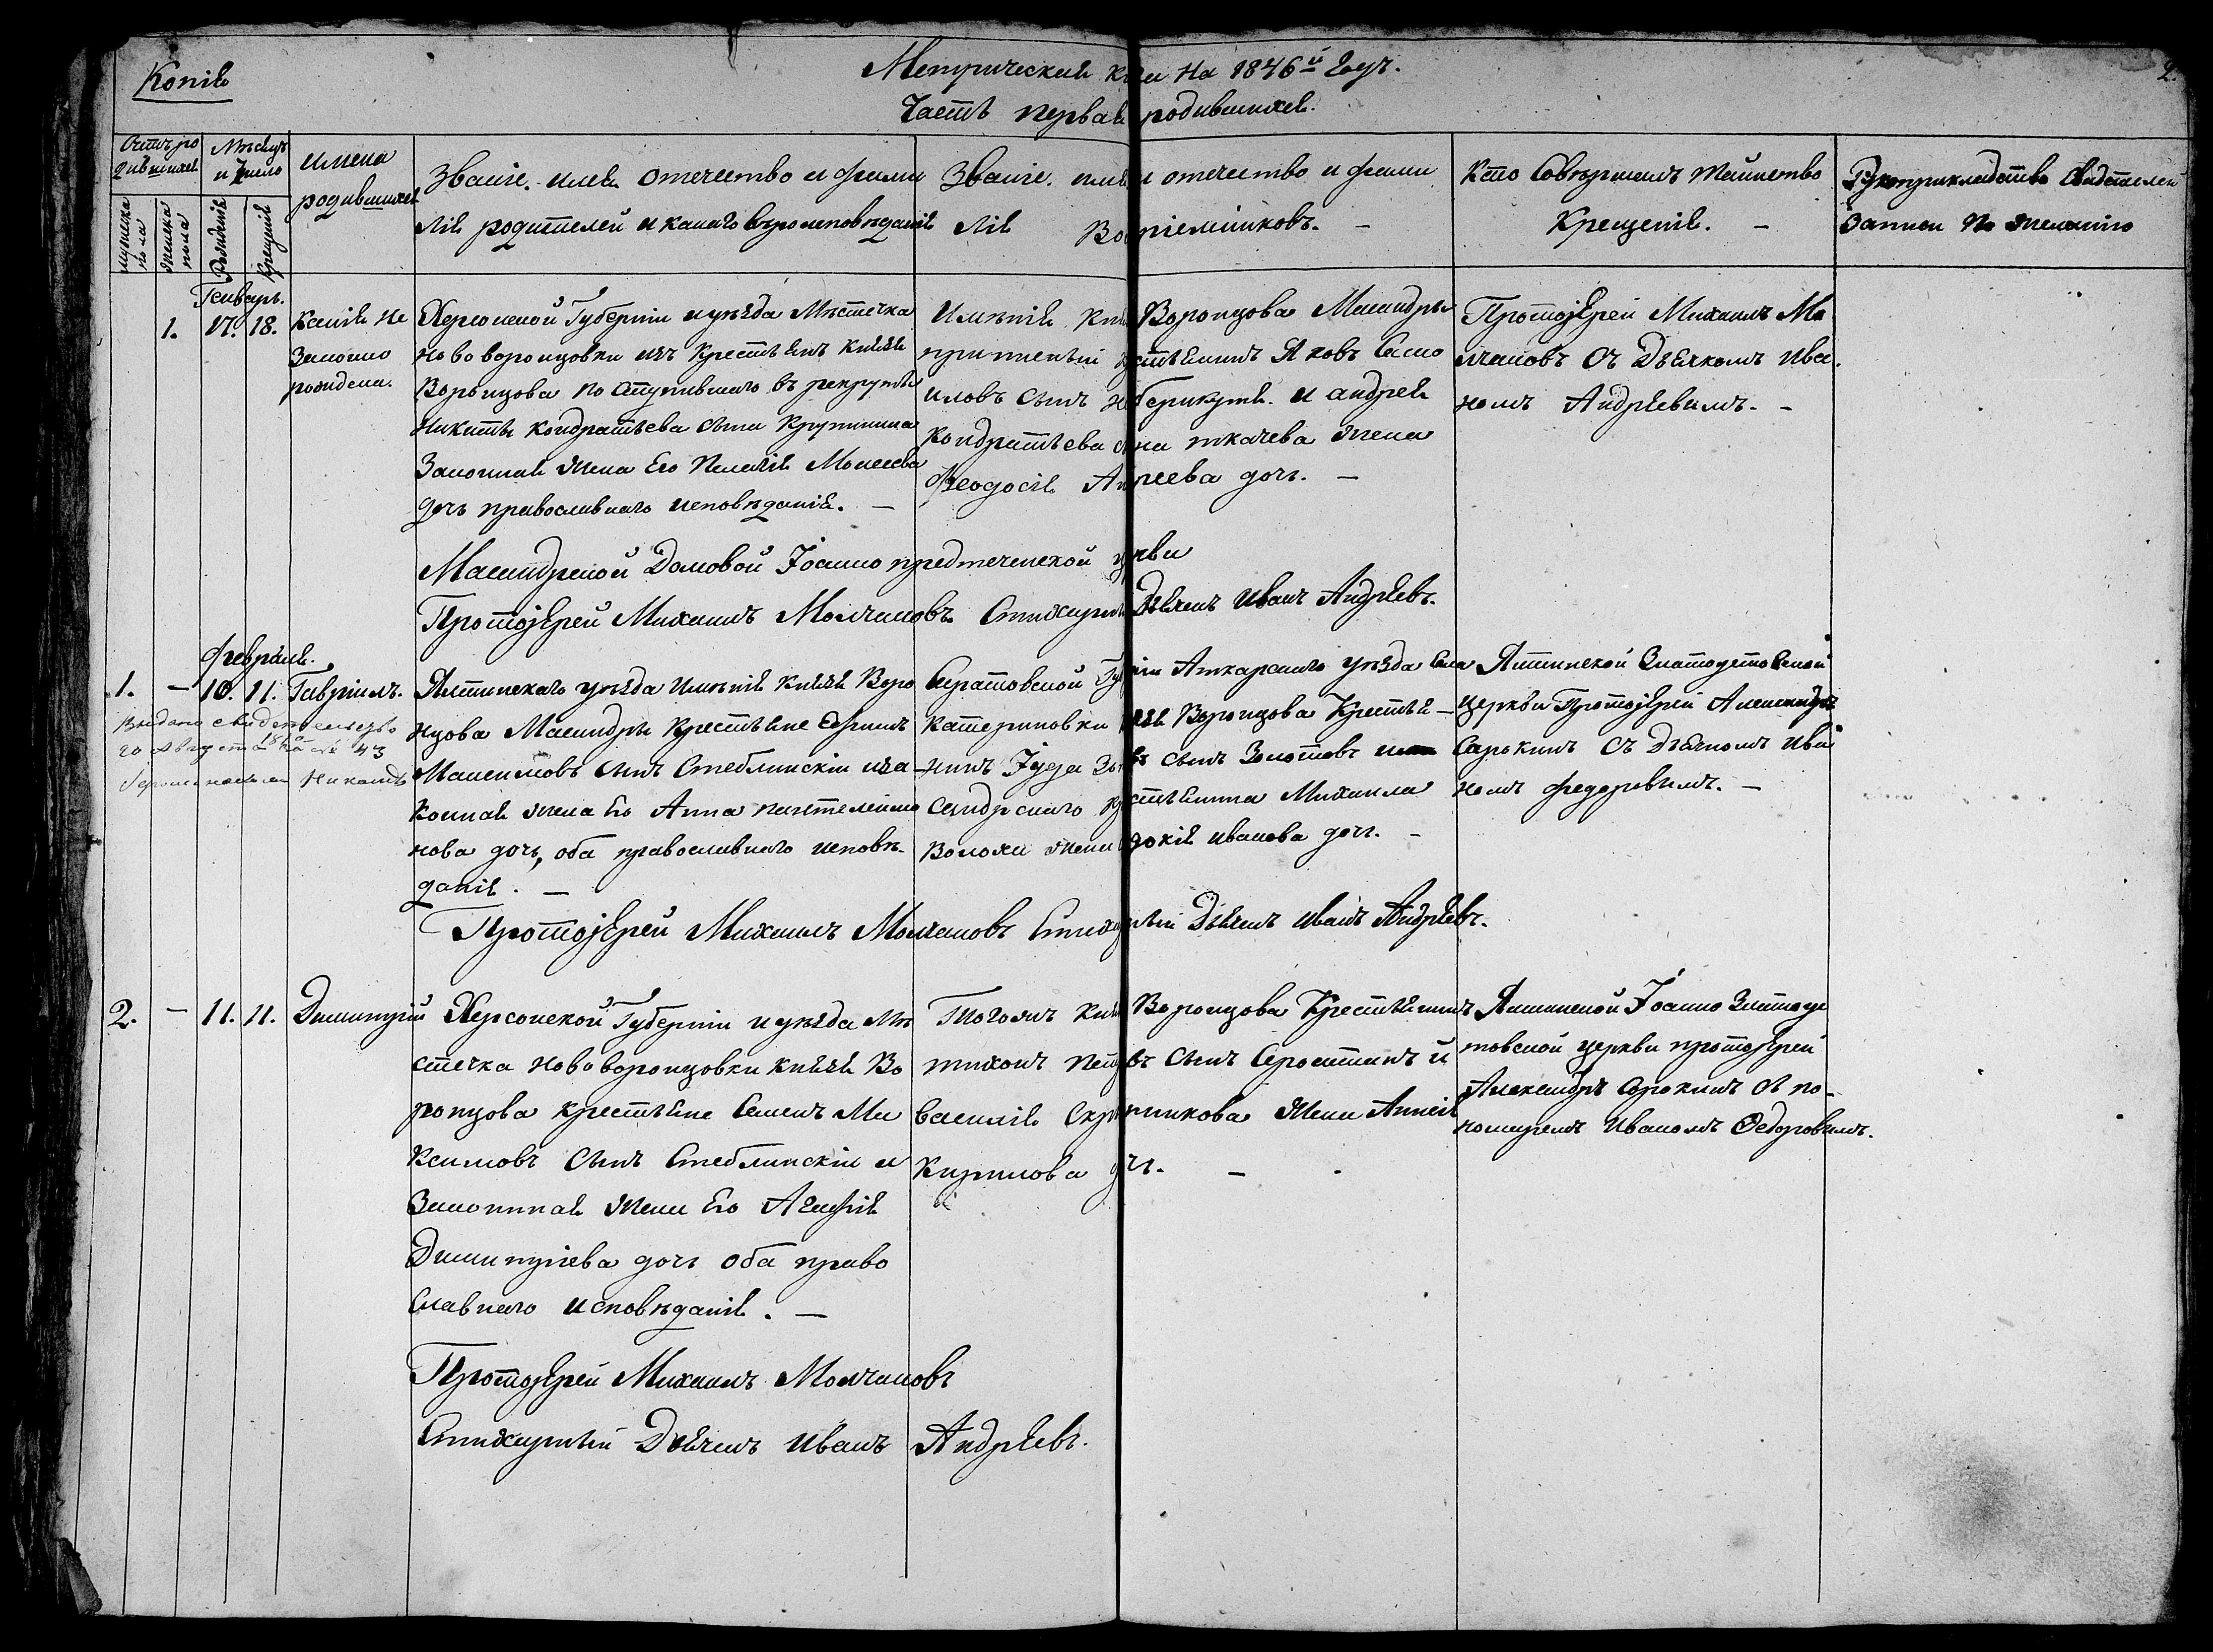 Копія
Метрической кни на 1846й годъ.
2.
Часть первая родившихся.
Счетъ ро
дившихся
мужеска
пола
женска
пола
Мѣсяцъ
и число
Рожденія
Крещенія
имена
родившихся
Званіе. имя отечество и фами
лія родителей и какаго вѣроисповѣданія
Званіе. имя и отечество и фами
лія Во пріемниковъ. –
Кто Совершалъ таинство
Крещенія. –
Рукоприкладство Свидѣтелей
Записи по желанію
Генварь.
1. 17. 18.
Ксенія не
Законно
рождена.
Херсонской Губерніи и уѣзда Мѣстечка
Нововоронцовки изъ крестьянъ князя
Воронцова поступившаго въ рекруты
Никиты Кондратьева сына
Законная жена Его Пелагія Моисеева
дочь православнаго исповѣданія. –
Имѣнія кня Воронцова Масандры
стьянинъ Яковъ Само
иловъ сынъ и андрея
кондратьева на ткачева жена
Феодосія Ан реева дочь. –
Протоіерей Михаилъ Мо
лчановъ съ Дьячкомъ Ива
номъ Андрѣевымъ. –
Масандрской Домовой Іоанно предтеченской ц ркви
Протоіерей Михаилъ Молчановъ. Стихарн Дьячекъ Иванъ Андрѣевъ.
Февраля.
1. – 10. 11. Гавріилъ.
Выдано свидетельство
20 Август № 43
Ялтинскаго уѣзда имѣнія князя Воро
нцова Масандры крестьяне Ефимъ
Максимовъ сынъ Стеблинскіи и за
конная жена Его Анна пантелеймо
нова дочь, оба православнаго исповѣ-
данія. –
Саратовской Гу ніи Аткарскаго уѣзда села
катериновки язя Воронцова Крестья –
нинъ Іуда въ сынъ Золотовъ
сандрскаго к стьянина Михаила
Волоха жена докія иванова дочь. –
Ялтинской Златоустовской
церкви Протоіерей Александръ
Сорокинъ съ Дьячкомъ Ива
номъ федоровымъ. –
Протоіерей Михаилъ Молчановъ Стиха ный Дьячекъ Иванъ Андрѣевъ.
2. – 11. 11. Димитрій
Херсонской Губерніи и уѣзда Мѣ
стечка нововоронцовки князя Во
ронцова крестьяне Семенъ Ма
ксимовъ сынъ Стеблинскіи и
Законная жена Его Агафія
Димитріева дочь оба право
славнаго исповѣданія. –
Тогожъ кня Воронцова Крестьянинъ
тихонъ въ сынъ й
василія Скр никова жена
Кирилова чь. –
Ялтинской Іоанно Златоус
товской церкви протоіерей
Александръ Сорокинъ съ по-
номаремъ Иваномъ Федоровымъ.
Протоіерей Михаилъ Молчановъ
Стихарный Дьячекъ Иванъ Андрѣевъ.